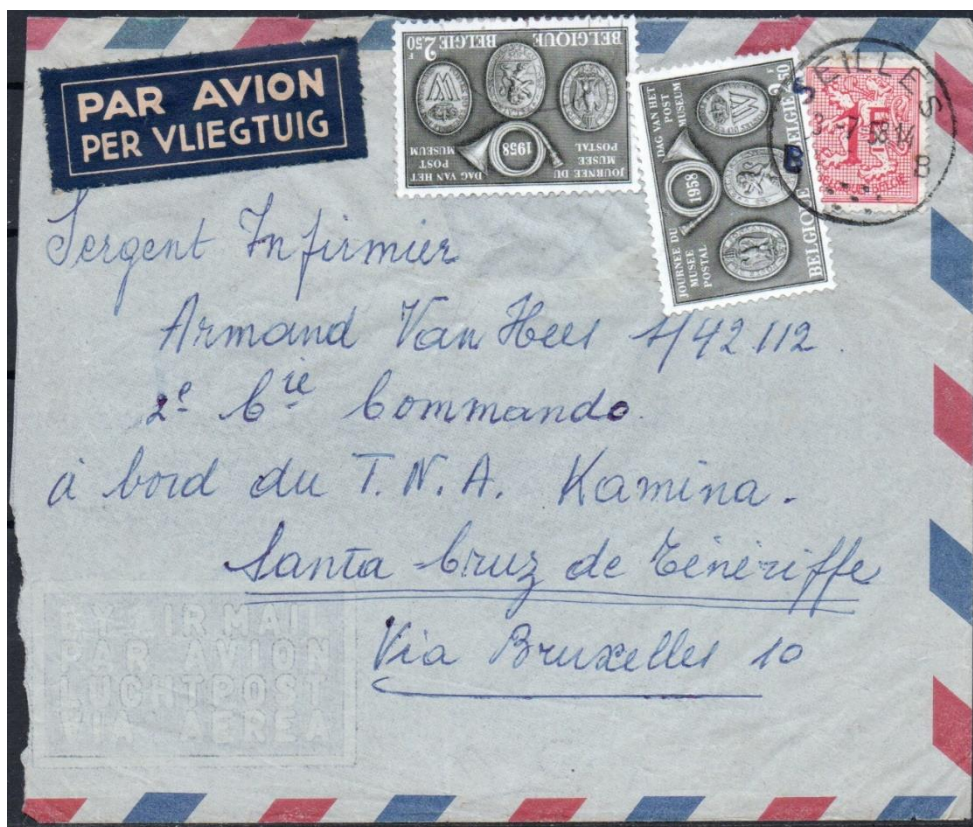 PAR AVION
PER VLIEGTUIG
BELGIQUE BELGIE 2.50 F
1958
JOURNEE DU
MUSEE
POSTAL
DAG VAN HET
POST
MUSEUM
BELGIQUE BELGIE 2.50 F
1958
JOURNEE DU
MUSEE
POSTAL
DAG VAN HET
POST
MUSEUM
SEILLES
58.14
B
S
B
15
Sergent Infirmier
Armand Van Hees 1/42112
2e Cie Commando.
à bord du T.N.A. Kamina.
Santa Cruz de Ténériffe
Via Bruxelles 10
BY AIR MAIL
PAR AVION
LUCHTPOST
VIA AEREA